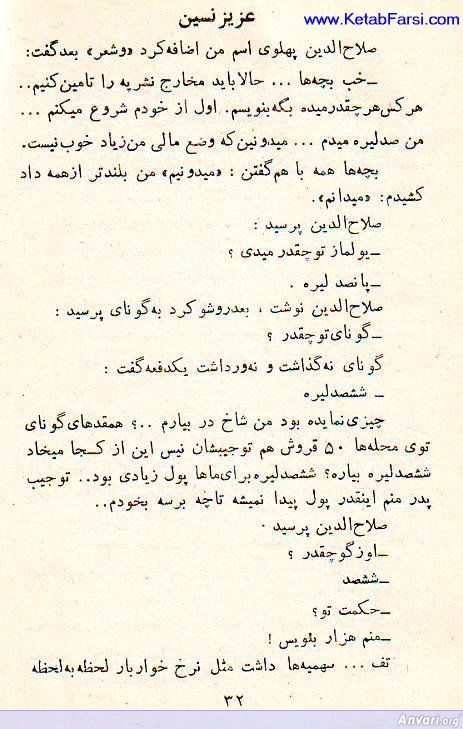 عزیز نسین
www.KetabFarsi.com
صلاح‌الدین پهلوی اسم من اضافه‌کرد «وشعر» بعدگفت:
ـ‌خب بچه‌ها ... حالاباید مخارج نشریه را تامین‌کنیم..
هرکس‌هرچقدرمیده بگه‌بنویسم. اول از خودم شروع میکنم ...
من صدلیره میدم ... میدونین‌که وضع مالی من‌زیاد خوب‌نیست.
بچه‌ها همه با هم‌گفتن : «میدونیم» من بلندتر ازهمه داد
کشیدم: «میدانم».
صلاح‌الدین پرسید :
ـ‌یولماز توچقدر میدی ؟
ـ‌پانصد لیره .
صلاح‌الدین نوشت ، بعدروشو کرد به‌گونای پرسید :
ـ‌گونای‌توچقدر ؟
گونای نه‌گذاشت و نه‌ورداشت یکدفعه‌گفت :
ـ ششصدلیره
چیزی‌نمایده بود من شاخ در بیارم ..؟ همقدهای‌گونای
توی محله‌ها ۵۰ قروش هم توجیبشان نیس این از کـجا میخاد
ششصدلیره بیاره؟ ششصدلیره‌برای‌ماها پول زیادی بود.. توجیب
پدر منم اینقدر پول پیدا نمیشه تاچه برسه بخودم..
صلاح‌الدین پرسید .
ـ‌اوزگوچقدر ؟
ـ‌ششصد
ـ‌حکمت تو؟
ـ‌منم هزار بنویس !
تف ... سهمیه‌ها داشت مثل نرخ خواربار لحظه‌به‌لحظه
۳۲
Anvari.org